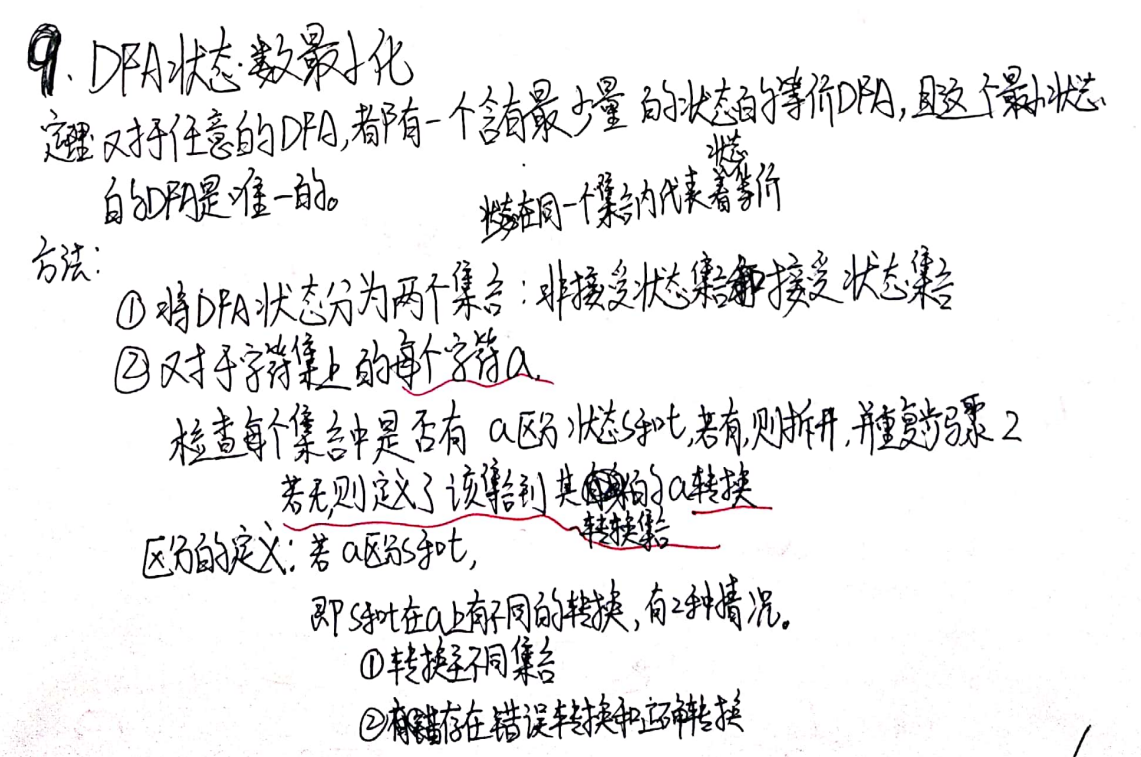 9. DFA状态数最小化
定理 对于任意的DFA,都有一个含有最少量的状态的等价DFA,且这个最小状态
的DFA是唯一的。
状态在同一个集合内代表着状态等价
方法:
①将DFA状态分为两个集合:非接受状态集合和接受状态集合
②对于字符集上的每个字符a.
检查每个集合中是否有 a区分状态s和t,若有,则拆开,并重复步骤2
若无,则定义了该集合到其转换集合的a转换
区分的定义:若a区分s和t,
即s和t在a上有不同的转换,有2种情况。
①转换至不同集合
②存在错误转换和正确转换